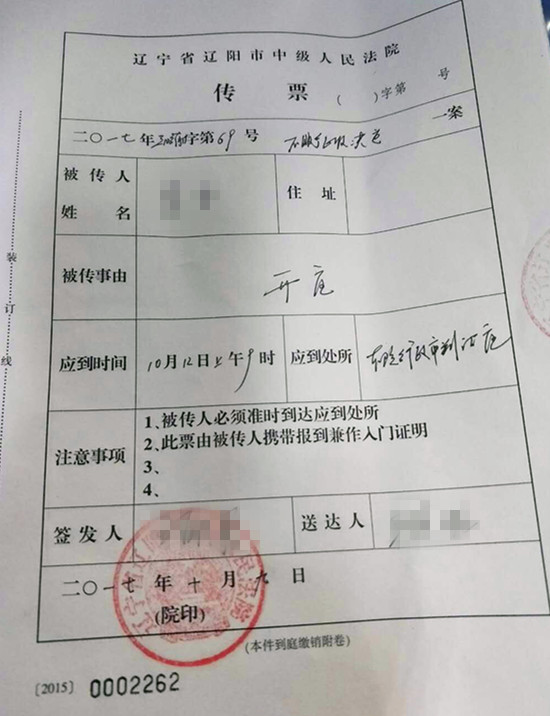 辽宁省辽阳市中级人民法院
传票
( )字第 号
二〇一七年 字第69号 不服征收决定 一案
被传人姓名
住址
被传事由
开庭
应到时间
10月12日上午9时
应到处所
本院行政审判 庭
注意事项
1、被传人必须准时到达应到处所
2、此票由被传人携带报到兼作入门证明
3、
4、
签发人
送达人
二〇一七年十月九日
(院印)
(本件到庭缴销附卷)
装订线
[2015] 0002262